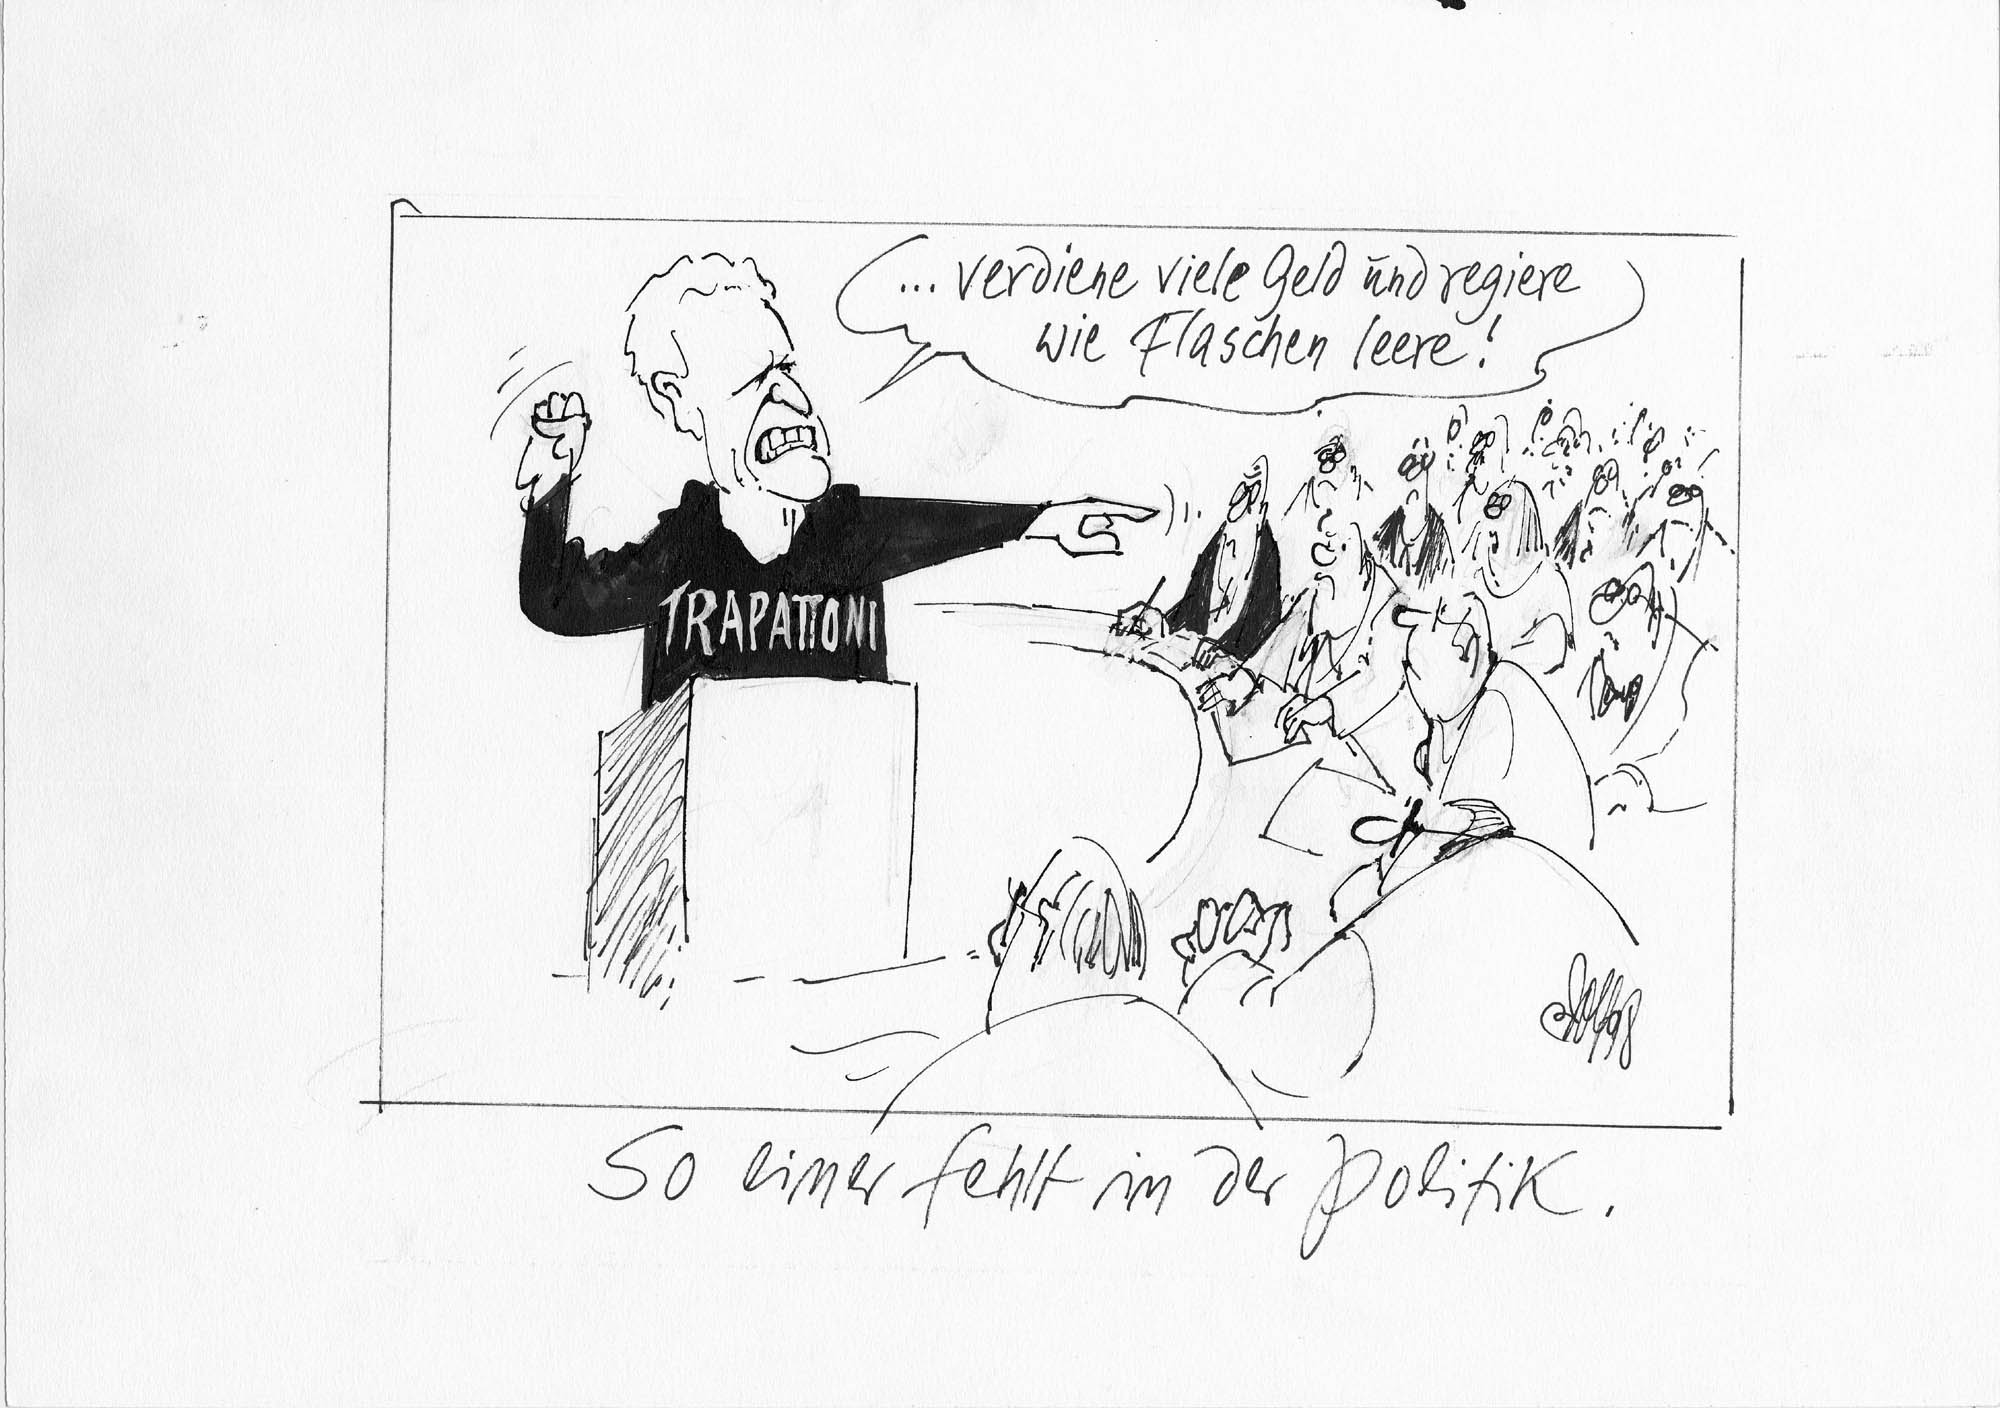 ... verdiene viele Geld und regiere
wie Flaschen leere!
TRAPATTONI
So einer fehlt in der Politik.